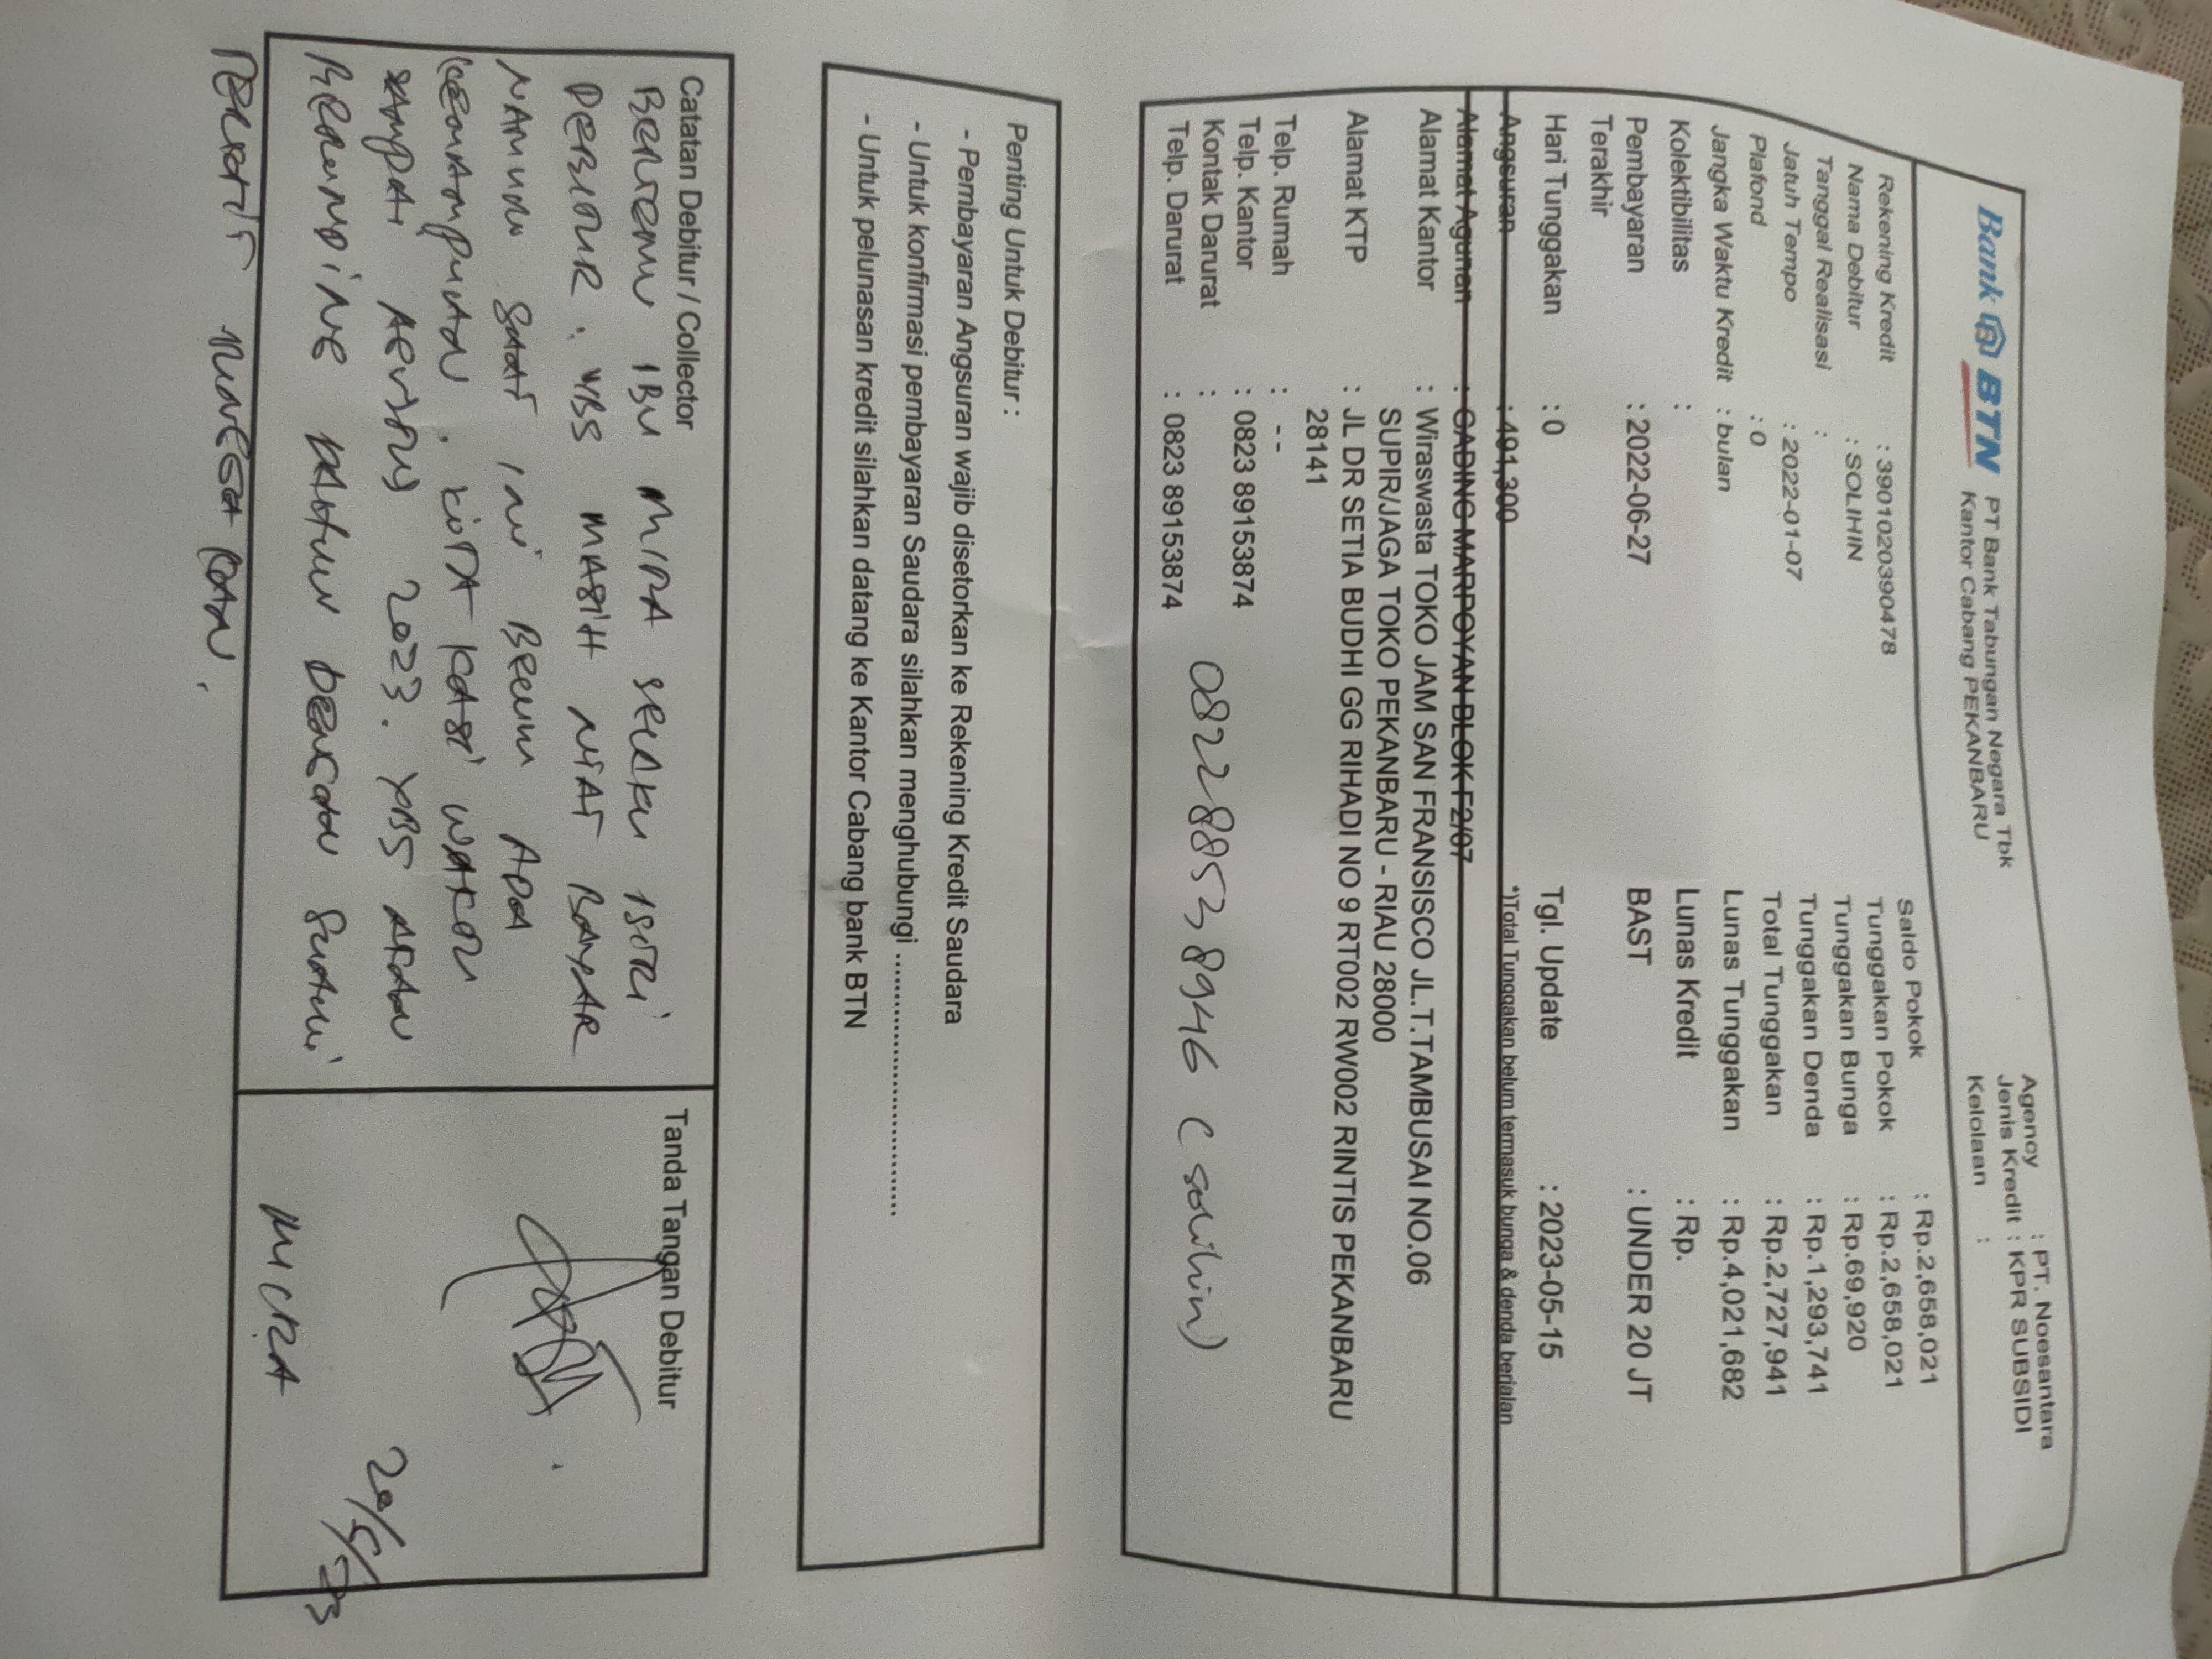 Bank BTN
PT Bank Tabungan Negara Tbk
Kantor Cabang PEKANBARU
Agency : PT. Noesantara
Jenis Kredit : KPR SUBSIDI
Kelolaan :
Rekening Kredit : 3901020390478
Nama Debitur : SOLIHIN
Tanggal Realisasi :
Jatuh Tempo : 2022-01-07
Plafond : 0
Jangka Waktu Kredit : bulan
Kolektibilitas :
Pembayaran Terakhir : 2022-06-27
Hari Tunggakan : 0
Angsuran : 491,300
Saldo Pokok : Rp.2,658,021
Tunggakan Pokok : Rp.2,658,021
Tunggakan Bunga : Rp.69,920
Tunggakan Denda : Rp.1,293,741
Total Tunggakan : Rp.2,727,941
Lunas Tunggakan : Rp.4,021,682
Lunas Kredit : Rp.
BAST : UNDER 20 JT
Tgl. Update : 2023-05-15
*)Total Tunggakan belum termasuk bunga & denda berjalan
Alamat Agunan : GADING MARPOYAN BLOK F2/07
Alamat Kantor : Wiraswasta TOKO JAM SAN FRANSISCO JL.T.TAMBUSAI NO.06
SUPIR/JAGA TOKO PEKANBARU - RIAU 28000
Alamat KTP : JL DR SETIA BUDHI GG RIHADI NO 9 RT002 RW002 RINTIS PEKANBARU
28141
Telp. Rumah : - -
Telp. Kantor : 0823 89153874
Kontak Darurat :
Telp. Darurat : 0823 89153874
082288538946 (solihin)
Penting Untuk Debitur :
- Pembayaran Angsuran wajib disetorkan ke Rekening Kredit Saudara
- Untuk konfirmasi pembayaran Saudara silahkan menghubungi ..............................
- Untuk pelunasan kredit silahkan datang ke Kantor Cabang bank BTN
Catatan Debitur / Collector
BERTEMU IBU MIRA SELAKU ISTRI
DEBITUR. YBS MASIH NIAT BAYAR
NAMUN SAAT INI BELUM ADA
KEMAMPUAN. KITA KASI WAKTU
SAMPAI AGUSTUS 2023. YBS AKAN
BERUNDING DAHULU DENGAN SUAMI
TERKAIT
Tanda Tangan Debitur
20/5/23
MIRA